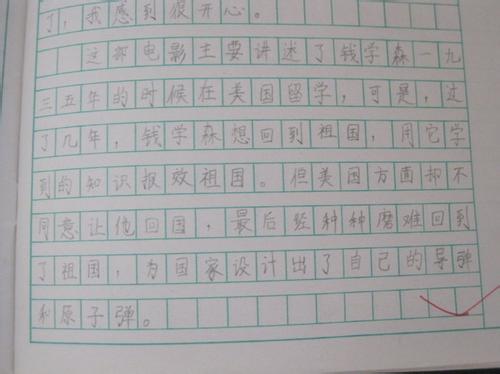 了，我感到很开心。
这部电影主要讲述了钱学森一九
三五年的时候在美国留学，可是，过
了几年，钱学森想回到祖国，用它学
到的知识报效祖国。但美国方面却不
同意让他回国，最后经种种磨难回到
了祖国，为国家设计出了自己的导弹
和原子弹。